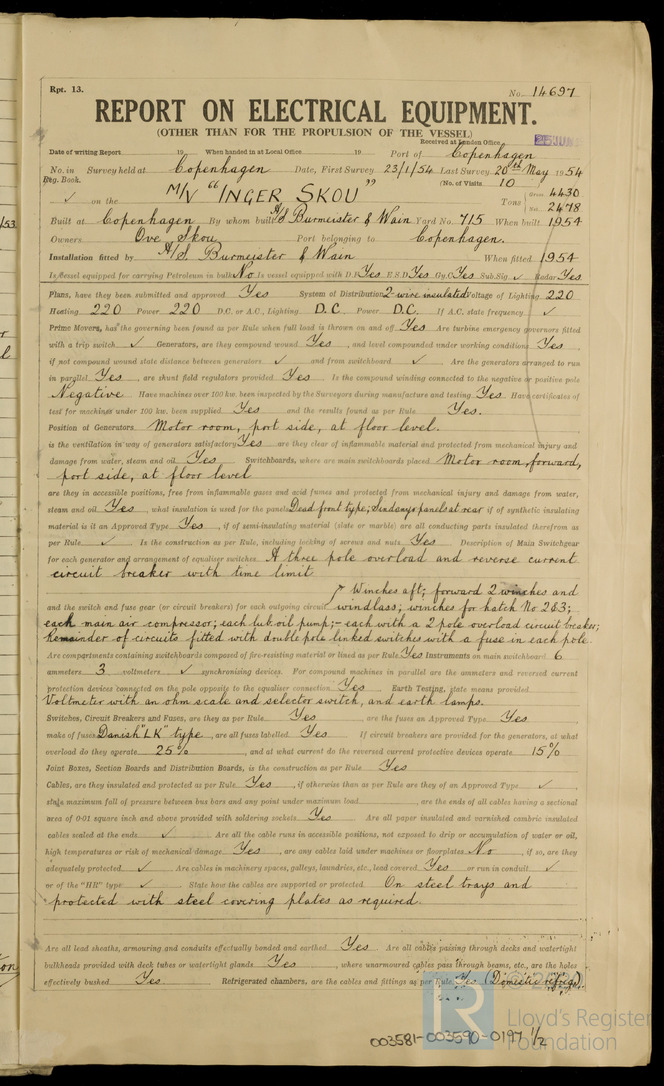 Rpt. 13.
No. 14697
REPORT ON ELECTRICAL EQUIPMENT.
(OTHER THAN FOR THE PROPULSION OF THE VESSEL)
Received at London Office
Date of writing Report 19 When handed in at Local Office 19 Port of Copenhagen
No. in Survey held at Copenhagen Date, First Survey 23/1/54 Last Survey 20th May 1954
Reg. Book. (No. of Visits 10
✓ on the M/V "INGER SKOU" Tons { Gross 4430
Net 2478
Built at Copenhagen By whom built A/S Burmeister & Wain Yard No. 715 When built 1954
Owners Ove Skou Port belonging to Copenhagen.
Installation fitted by A/S. Burmeister & Wain When fitted 1954
Is vessel equipped for carrying Petroleum in bulk No Is vessel equipped with D.F. Yes E.S.D. Yes Gy.C. Yes Sub.Sig. ✓ Radar Yes
Plans, have they been submitted and approved Yes System of Distribution 2 wire insulated Voltage of Lighting 220
Heating 220 Power 220 D.C. or A.C., Lighting D.C. Power D.C. If A.C. state frequency ✓
Prime Movers, has the governing been found as per Rule when full load is thrown on and off Yes Are turbine emergency governors fitted
with a trip switch ✓ Generators, are they compound wound Yes, and level compounded under working conditions Yes,
if not compound wound state distance between generators ✓ and from switchboard ✓ Are the generators arranged to run
in parallel Yes, are shunt field regulators provided Yes Is the compound winding connected to the negative or positive pole
Negative Have machines over 100 kw. been inspected by the Surveyors during manufacture and testing Yes Have certificates of
test for machines under 100 kw. been supplied Yes and the results found as per Rule Yes.
Position of Generators Motor room, port side, at floor level.
is the ventilation in way of generators satisfactory Yes are they clear of inflammable material and protected from mechanical injury and
damage from water, steam and oil Yes Switchboards, where are main switchboards placed Motor room, forward,
port side, at floor level
are they in accessible positions, free from inflammable gases and acid fumes and protected from mechanical injury and damage from water,
steam and oil Yes, what insulation is used for the panels Dead front type; Sindanyo panels at rear if of synthetic insulating
material is it an Approved Type Yes, if of semi-insulating material (slate or marble) are all conducting parts insulated therefrom as
per Rule ✓ Is the construction as per Rule, including locking of screws and nuts Yes Description of Main Switchgear
for each generator and arrangement of equaliser switches A three pole overload and reverse current
circuit breaker with time limit
Winches aft; forward 2 winches and
and the switch and fuse gear (or circuit breakers) for each outgoing circuit windlass; winches for hatch No 2&3;
each main air compressor; each lub. oil pump; - each with a 2 pole overload circuit breaker;
Remainder of circuits fitted with double pole linked switches with a fuse in each pole.
Are compartments containing switchboards composed of fire-resisting material or lined as per Rule Yes Instruments on main switchboard 6
ammeters 3 voltmeters ✓ synchronising devices. For compound machines in parallel are the ammeters and reversed current
protection devices connected on the pole opposite to the equaliser connection Yes Earth Testing, state means provided
Voltmeter with an ohm scale and selector switch, and earth lamps.
Switches, Circuit Breakers and Fuses, are they as per Rule Yes are the fuses an Approved Type Yes
make of fuses Danish "LK" type, are all fuses labelled Yes If circuit breakers are provided for the generators, at what
overload do they operate 25%, and at what current do the reversed current protective devices operate 15%
Joint Boxes, Section Boards and Distribution Boards, is the construction as per Rule Yes
Cables, are they insulated and protected as per Rule Yes, if otherwise than as per Rule are they of an Approved Type ✓
state maximum fall of pressure between bus bars and any point under maximum load, are the ends of all cables having a sectional
area of 0·01 square inch and above provided with soldering sockets Yes Are all paper insulated and varnished cambric insulated
cables sealed at the ends ✓ Are all the cable runs in accessible positions, not exposed to drip or accumulation of water or oil,
high temperatures or risk of mechanical damage Yes, are any cables laid under machines or floorplates No, if so, are they
adequately protected ✓ Are cables in machinery spaces, galleys, laundries, etc., lead covered Yes or run in conduit ✓
or of the "HR" type ✓ State how the cables are supported or protected On steel trays and
protected with steel covering plates as required.
Are all lead sheaths, armouring and conduits effectually bonded and earthed Yes Are all cables passing through decks and watertight
bulkheads provided with deck tubes or watertight glands Yes, where unarmoured cables pass through beams, etc., are the holes
effectively bushed Yes Refrigerated chambers, are the cables and fittings as per Rule Yes (Domestic refrig).
© 20
Lloyd's Register
Foundation
003581-003590-0197 1/2